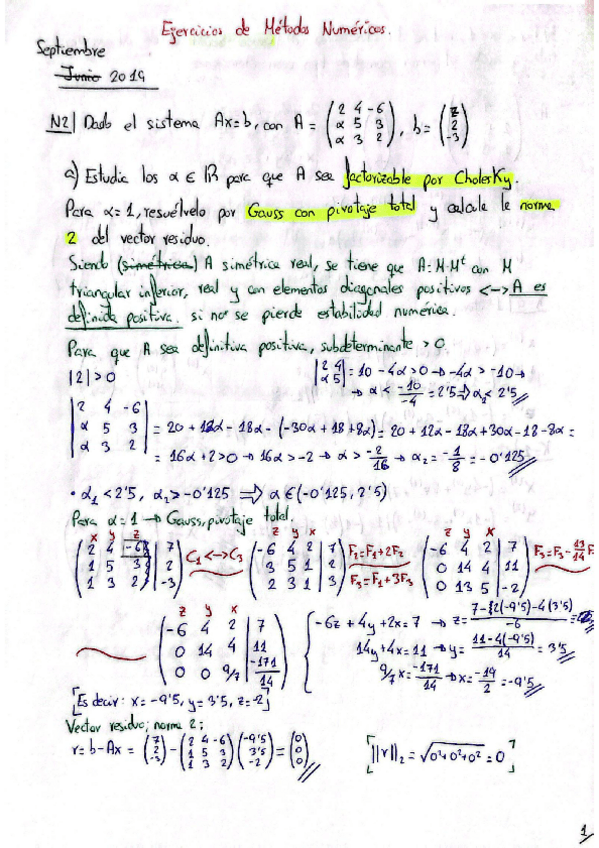 Ejercicios de Métodos Numéricos.
Septiembre
Junio 2019
N2 | Dado el sistema Ax=b, con A = (2 4 -6; α 5 3; α 3 2), b = (7; 2; -3)
a) Estudia los α ∈ ℝ para que A sea factorizable por Cholesky.
Para α=1, resuélvelo por Gauss con pivotaje total y calcula le norma
2 del vector residuo.
Siendo (simétrica) A simétrica real, se tiene que A=M·Mᵗ con M
triangular inferior, real y con elementos diagonales positivos <-> A es
definida positiva. si no se pierde estabilidad numérica.
Para que A sea definitiva positiva, subdeterminante > 0.
|2| > 0
|2 4; α 5| = 10 - 4α > 0 → -4α > -10 →
→ α < -10/-4 = 2'5 ⇒ α < 2'5
|2 4 -6; α 5 3; α 3 2| = 20 + 12α - 18α - (-30α + 18 + 8α) = 20 + 12α - 18α + 30α - 18 - 8α =
= 16α + 2 > 0 → 16α > -2 → α > -2/16 → α₂ = -1/8 = -0'125
• α₁ < 2'5, α₂ > -0'125 ⇒ α ∈ (-0'125, 2'5)
Para α=1 → Gauss, pivotaje total.
x y z
(2 4 -6 | 7; 1 5 3 | 2; 1 3 2 | -3) C₁ <-> C₃
z y x
(-6 4 2 | 7; 3 5 1 | 2; 2 3 1 | 3) F₂=F₁+2F₂
F₃=F₁+3F₃
z y x
(-6 4 2 | 7; 0 14 4 | 11; 0 13 5 | -2) F₃=F₃-13/14 F
z y x
(-6 4 2 | 7; 0 14 4 | 11; 0 0 9/7 | -171/14)
-6z + 4y + 2x = 7 → z = 7-2(-9'5)-4(3'5)/-6 =
14y + 4x = 11 → y = 11-4(-9'5)/14 = 3'5
9/7 x = -171/14 → x = -19/2 = -9'5
[Es decir: x = -9'5, y = 3'5, z = -2]
Vector residuo; norma 2:
r = b - Ax = (7; 2; -3) - (2 4 -6; 1 5 3; 1 3 2)(-9'5; 3'5; -2) = (0; 0; 0)
[||r||₂ = √0²+0²+0² = 0]
1